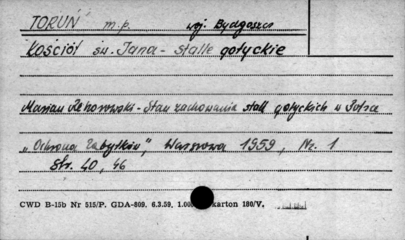 TORUŃ m.p. woj. Bydgoszcz
Kościół św. Jana - stalle gotyckie
Marian Rehorowski - Stan zachowania stall gotyckich w Polsce
„Ochrona Zabytków", Warszawa 1959, Nr. 1
str. 40, 46
CWD B-15b Nr 515/P. GDA-809. 6.3.59. karton 180/V.